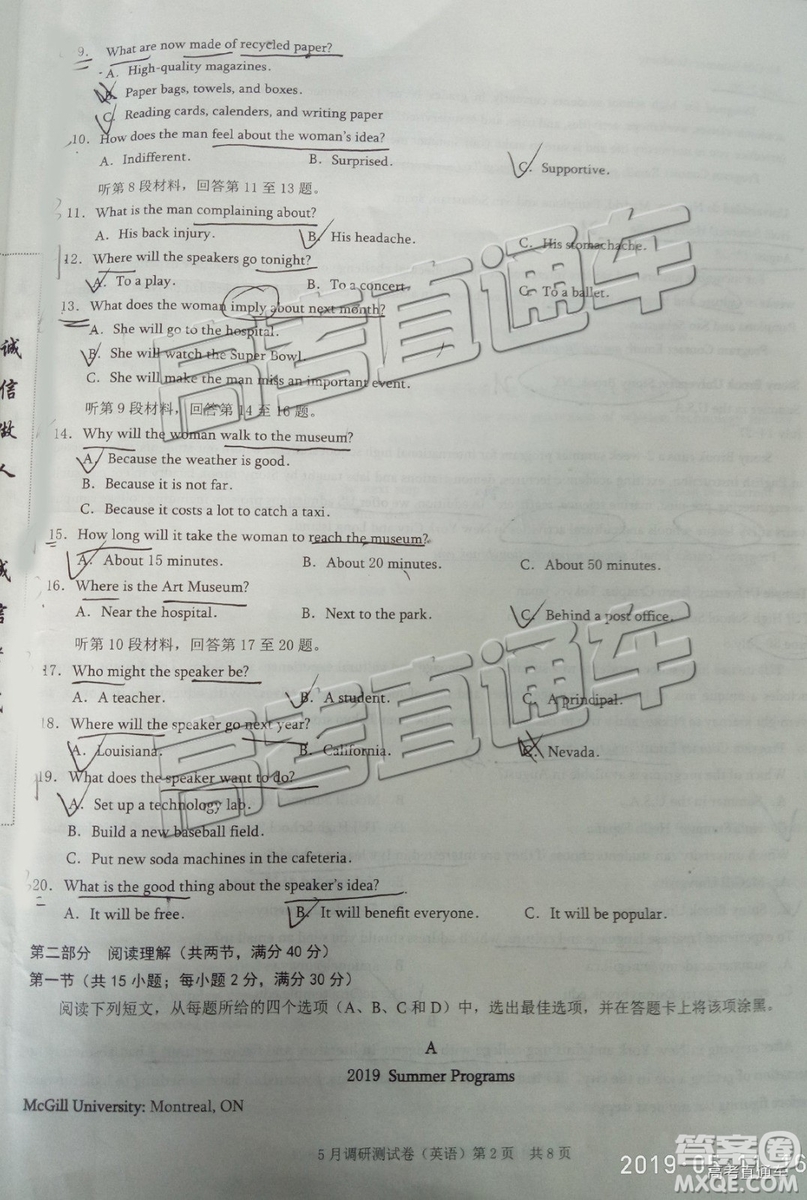 9. What are now made of recycled paper?
A. High-quality magazines.
B. Paper bags, towels, and boxes.
C. Reading cards, calenders, and writing paper
10. How does the man feel about the woman's idea?
A. Indifferent. B. Surprised. C. Supportive.
听第 8 段材料，回答第 11 至 13 题。
11. What is the man complaining about?
A. His back injury. B. His headache. C. His stomachache.
12. Where will the speakers go tonight?
A. To a play. B. To a concert. C. To a ballet.
13. What does the woman imply about next month?
A. She will go to the hospital.
B. She will watch the Super Bowl.
C. She will make the man miss an important event.
听第 9 段材料，回答第 14 至 16 题。
14. Why will the woman walk to the museum?
A. Because the weather is good.
B. Because it is not far.
C. Because it costs a lot to catch a taxi.
15. How long will it take the woman to reach the museum?
A. About 15 minutes. B. About 20 minutes. C. About 50 minutes.
16. Where is the Art Museum?
A. Near the hospital. B. Next to the park. C. Behind a post office.
听第 10 段材料，回答第 17 至 20 题。
17. Who might the speaker be?
A. A teacher. B. A student. C. A principal.
18. Where will the speaker go next year?
A. Louisiana. B. California. C. Nevada.
19. What does the speaker want to do?
A. Set up a technology lab.
B. Build a new baseball field.
C. Put new soda machines in the cafeteria.
20. What is the good thing about the speaker's idea?
A. It will be free. B. It will benefit everyone. C. It will be cool.
第二部分 阅读理解（共两节，满分 40 分）
第一节（共 15 小题；每小题 2 分，满分 30 分）
阅读下列短文，从每题所给的四个选项（A、B、C 和 D）中，选出最佳选项，并在答题卡上将该项涂黑。
A
2019 Summer Programs
McGill University: Montreal, ON
5 月调研测试卷（英语）第 2 页 共 8 页
诚信做人
高考直通车
高考直通车
答案圈
MXQE.COM
高考直通车